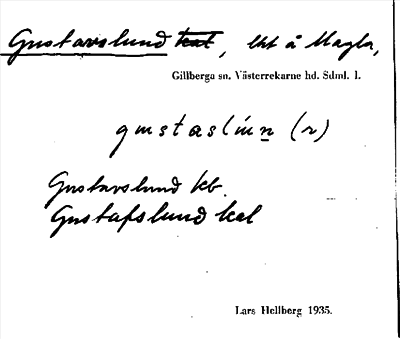 Gustavslund kal, lht å Magla,
Gillberga sn. Västerrekarne hd. Sdml. l.
gustaslún̲ (r)
Gustavslund kb.
Gustafslund kal
Lars Hellberg 1935.